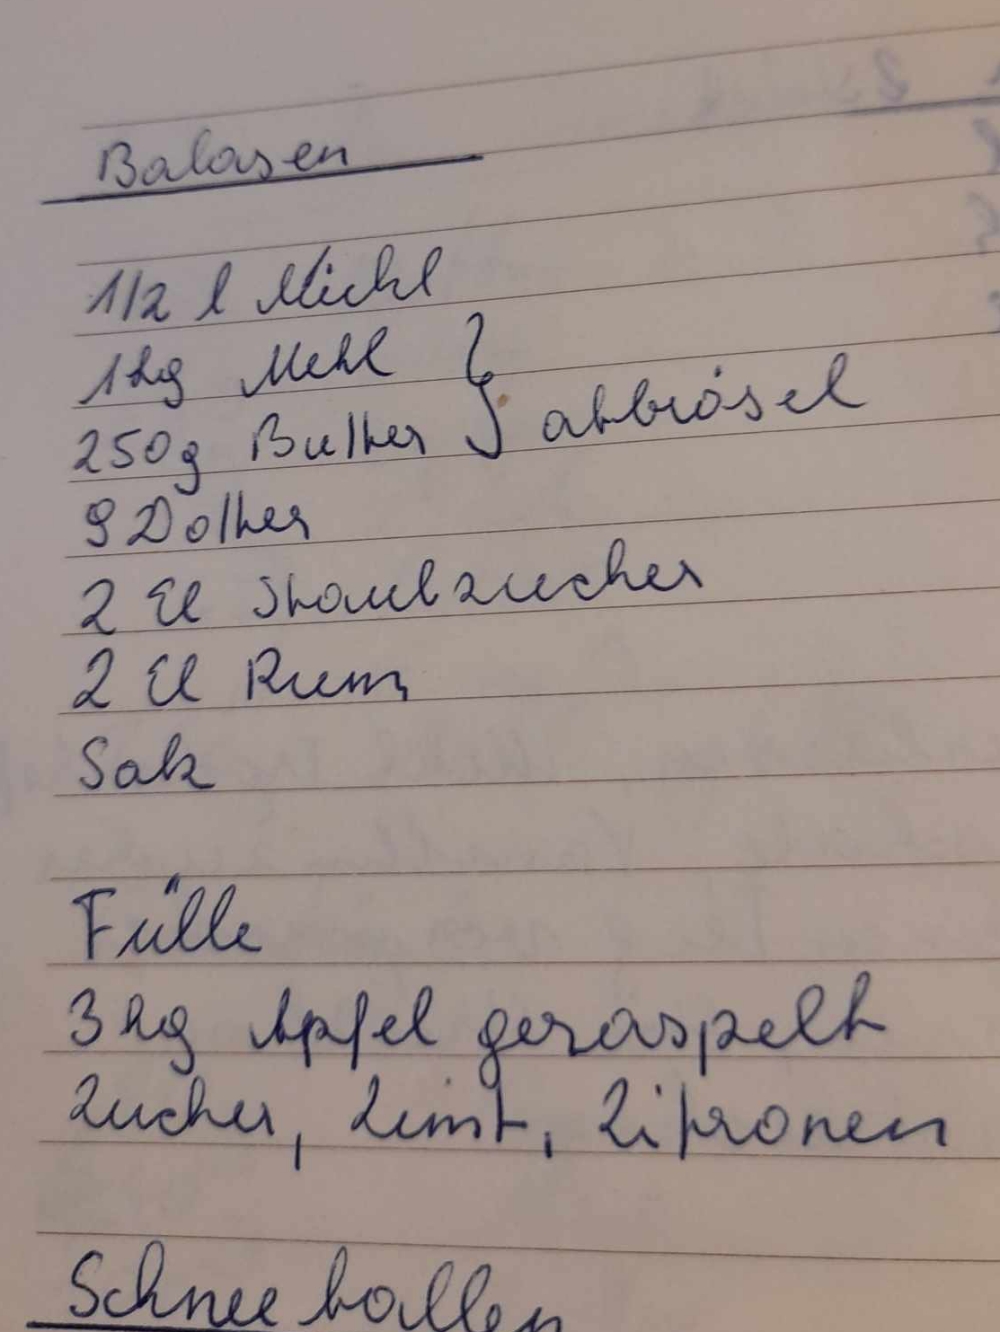 Balasen
1/2 l Michl
1kg Mehl
250g Butter } abbrösel
9 Dotter
2 El Staubzucker
2 El Rum
Salz
Fülle
3 kg Apfel geraspelt
Zucker, Zimt, Zitronen
Schneeballen